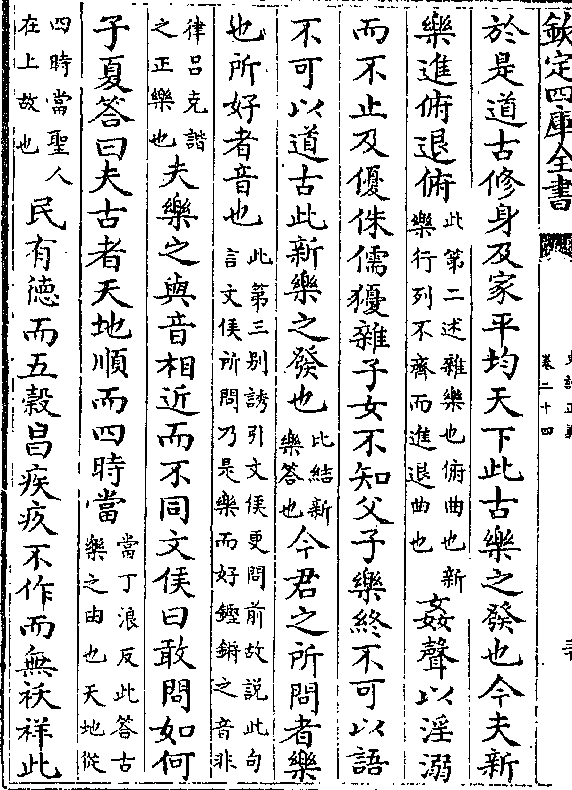 欽定四庫全書
卷二十四
於是道古修身及家平均天下此古樂之發也今夫新
樂進俯退俯此第二述雜樂也俯曲也新樂行列不齊而進退曲也姦聲以淫溺
而不止及優侏儒獶雜子女不知父子樂終不可以語
不可以道古此新樂之發也此結新樂答也今君之所問者樂
也所好者音也此第三别誘引文侯更問前故説此句言文侯所問乃是樂而好鏗鏘之音非
律吕克諧之正樂也夫樂之與音相近而不同文侯曰敢問如何
子夏答曰夫古者天地順而四時當當丁浪反此答古樂之由也天地從
四時當聖人在上故也民有德而五穀昌疾疢不作而無祅祥此